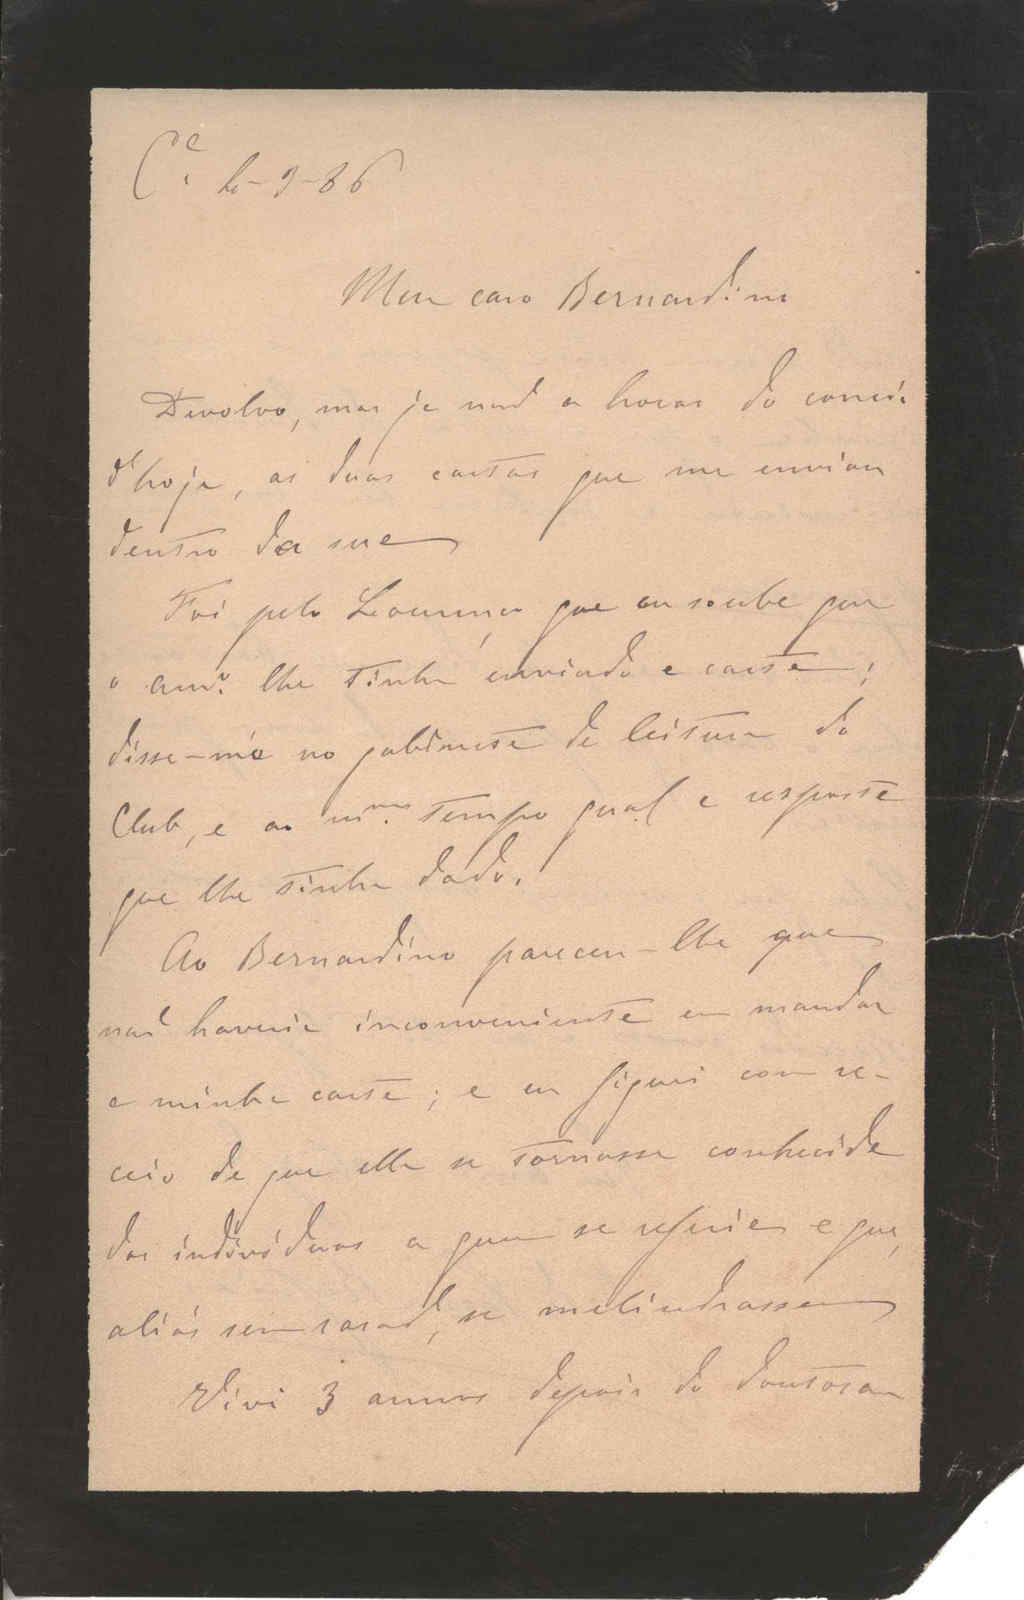 C.e 4-9-86
Meu caro Bernardino
Devolvo, mas ja nad a horas do correio
d'hoje, as duas cartas que me enviou
dentro da sua
Foi pelo Lourenço que eu soube que
o am.º lhe tinha enviado a carta;
disse-m'o no gabinete de leitura do
Club, e ao m.mo tempo qual a resposta
que lhe tinha dado.
Ao Bernardino pareceu-lhe que
nad haveria inconveniente em mandar
a minha carta; e eu fiquei com re-
ceio de que ella se tornasse conhecida
dos individuos a quem se referia e que,
aliás sem rasad, se melindrassem
Vivi 3 annos depois de doutoram